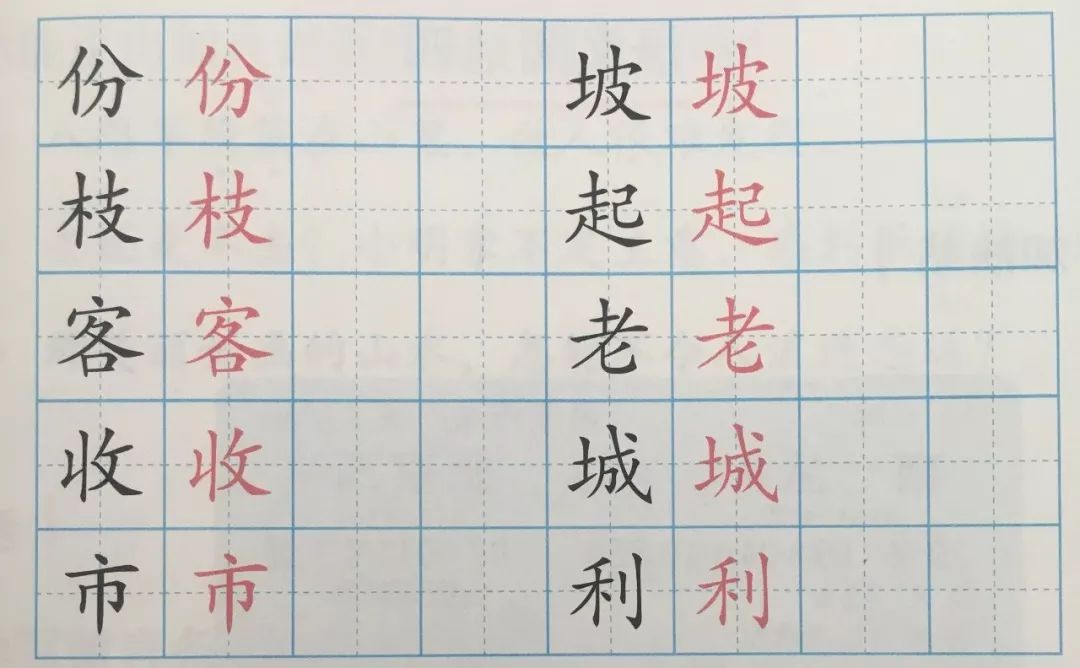 份 份 坡 坡
枝 枝 起 起
客 客 老 老
收 收 城 城
市 市 利 利